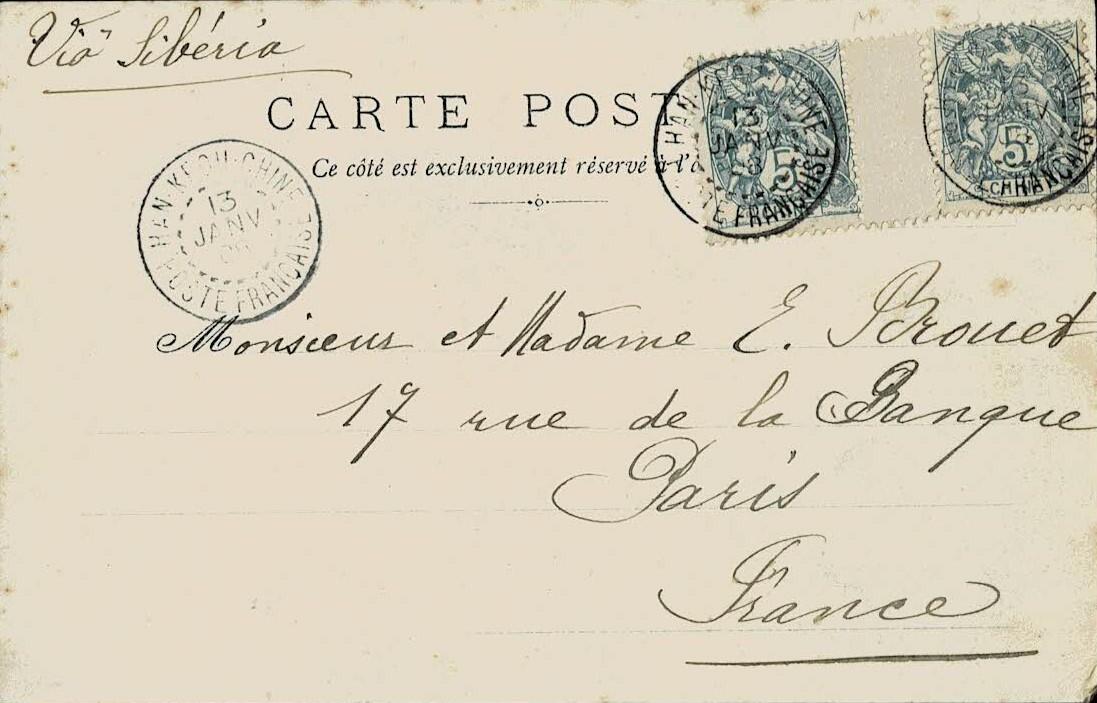 Via Sibéria
CARTE POST
Ce côté est exclusivement réservé à l'a
HAN-KEOU-CHINE
13
JANV
POSTE FRANÇAISE
HAN-K CHINE
13
JANV
TE FRANÇAISE
5
5
CHINE
FRANÇAISE
Monsieur et Madame E. Brouet
17 rue de la Banque
Paris
France